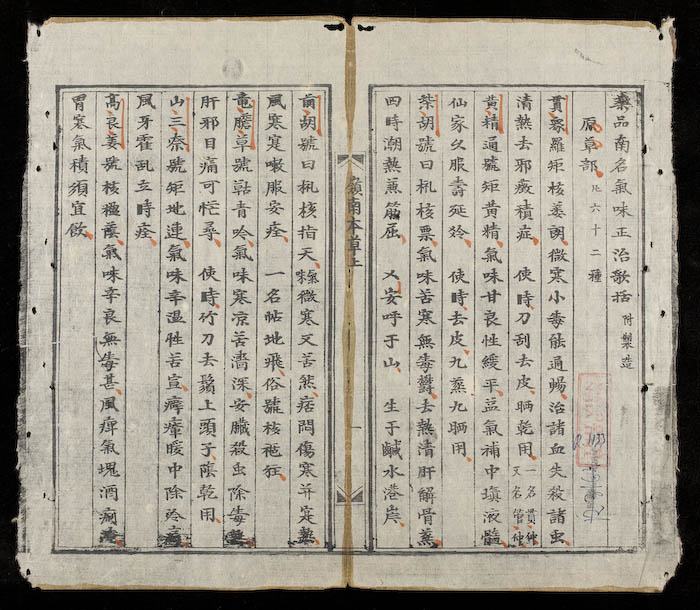 藥品南名氣味正治歌括 附製造
原草部 凡六十二種
貫衆羅矩核蔞 微寒小毒能通暢治諸血失殺諸虫
清熱去邪癥積症 使時刀刮去皮晒乾用 一名貫仲 又名管仲
黄精通號矩黄精氣味甘良性緩平益氣補中填液髓
仙家久服壽延岭 使時去皮九蒸九晒用
柴胡號曰 核栗氣味苦寒無毒欝去熱清肝解骨蒸
四時潮熱蒸筋屈 又安呼于山 生于鹹水港岸
嶺南本草上
一
前胡號曰 核指天 微寒又苦 痞悶傷寒并寔熱
風寒寔嗽服安痊 一名帖地飛俗號核 狂
竜膽草號 青吟氣味寒凉苦濇深安臟殺虫除毒熱
肝邪目痛可忙尋 使時竹刀去鬚上頭子 乾用
山三柰號矩地連氣味辛温性苦宣癖瘴暖中除冷
風牙霍乱立時痊
高良姜號核 氣味辛良無毒甚風痺氣塊酒
胃寒氣積須宜飲
R.1133